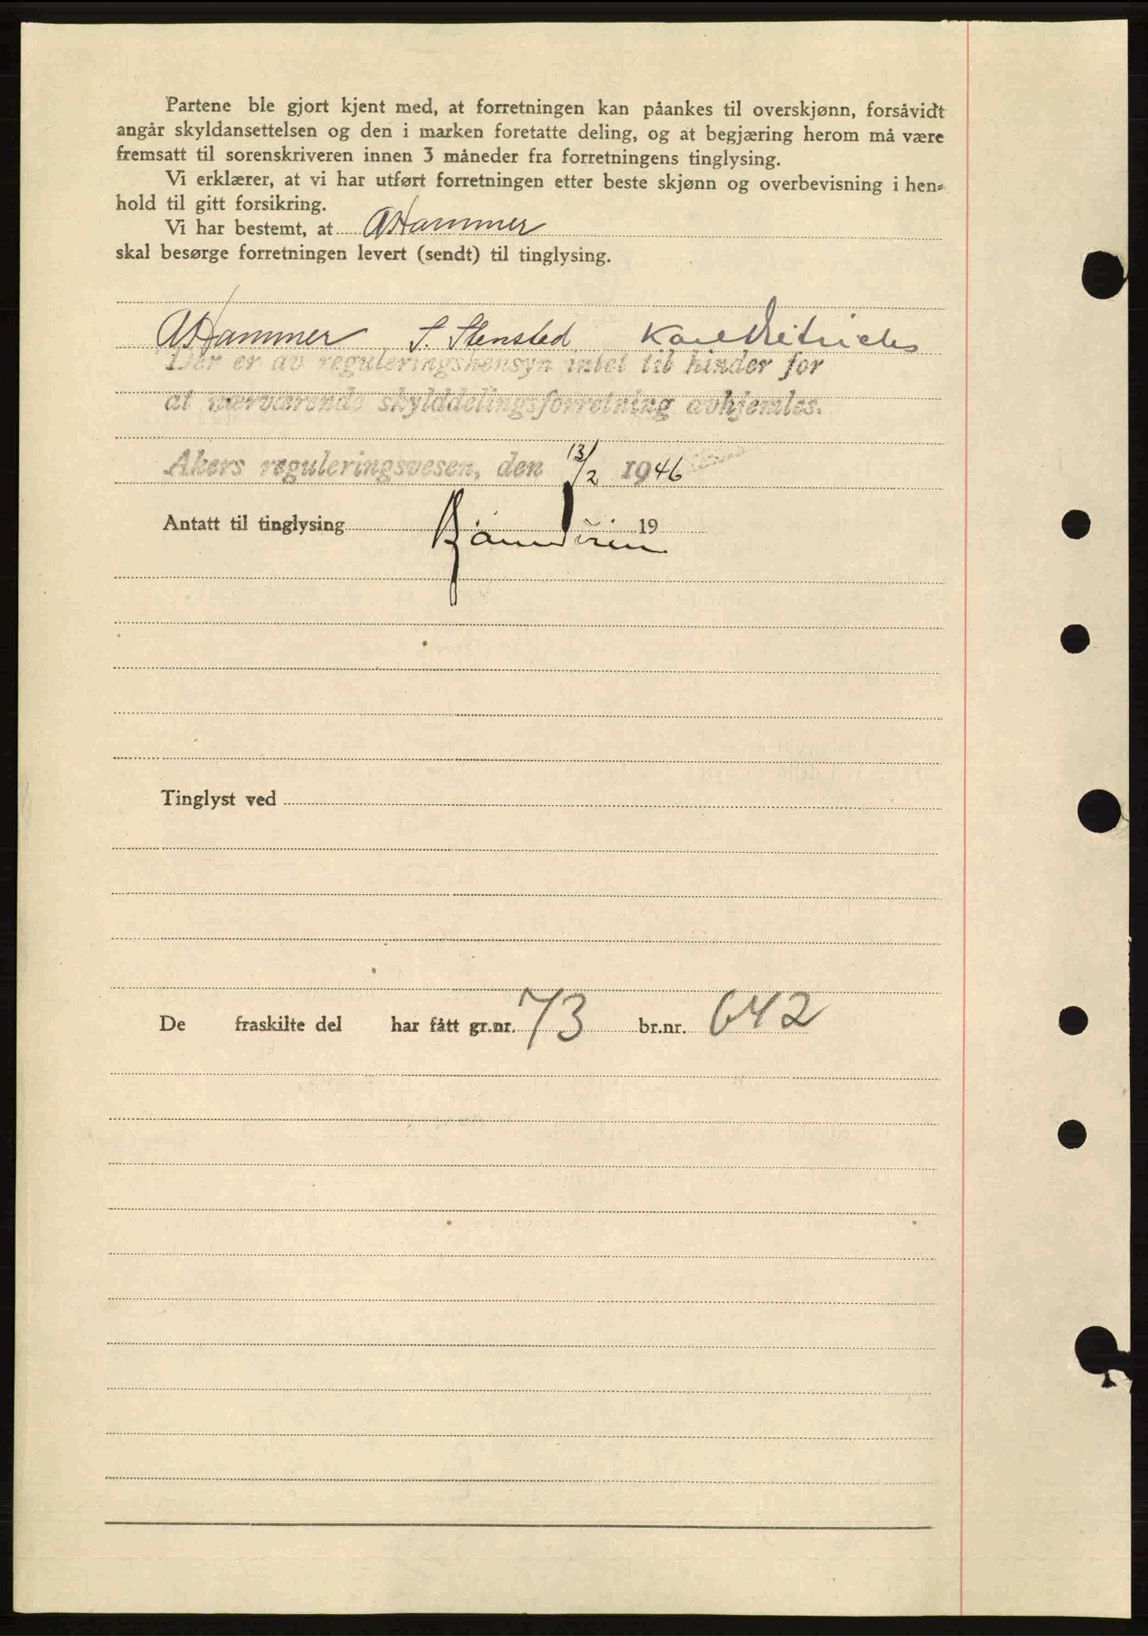 Partene ble gjort kjent med, at forretningen kan påankes til overskjønn, forsåvidt
angår skyldansettelsen og den i marken foretatte deling, og at begjæring herom må være
fremsatt til sorenskriveren innen 3 måneder fra forretningens tinglysing.
Vi erklærer, at vi har utført forretningen etter beste skjønn og overbevisning i hen-
hold til gitt forsikring.
Vi har bestemt, at A Hammer
skal besørge forretningen levert (sendt) til tinglysing.
A Hammer S. Stensted Karl
Der er av reguleringshensyn intet til hinder for
at nærværende skylddelingsforretning avhjemles.
Akers reguleringsvesen, den 13/2 1946
Antatt til tinglysing 19
Tinglyst ved
De fraskilte del har fått gr.nr. 73 br.nr. 642